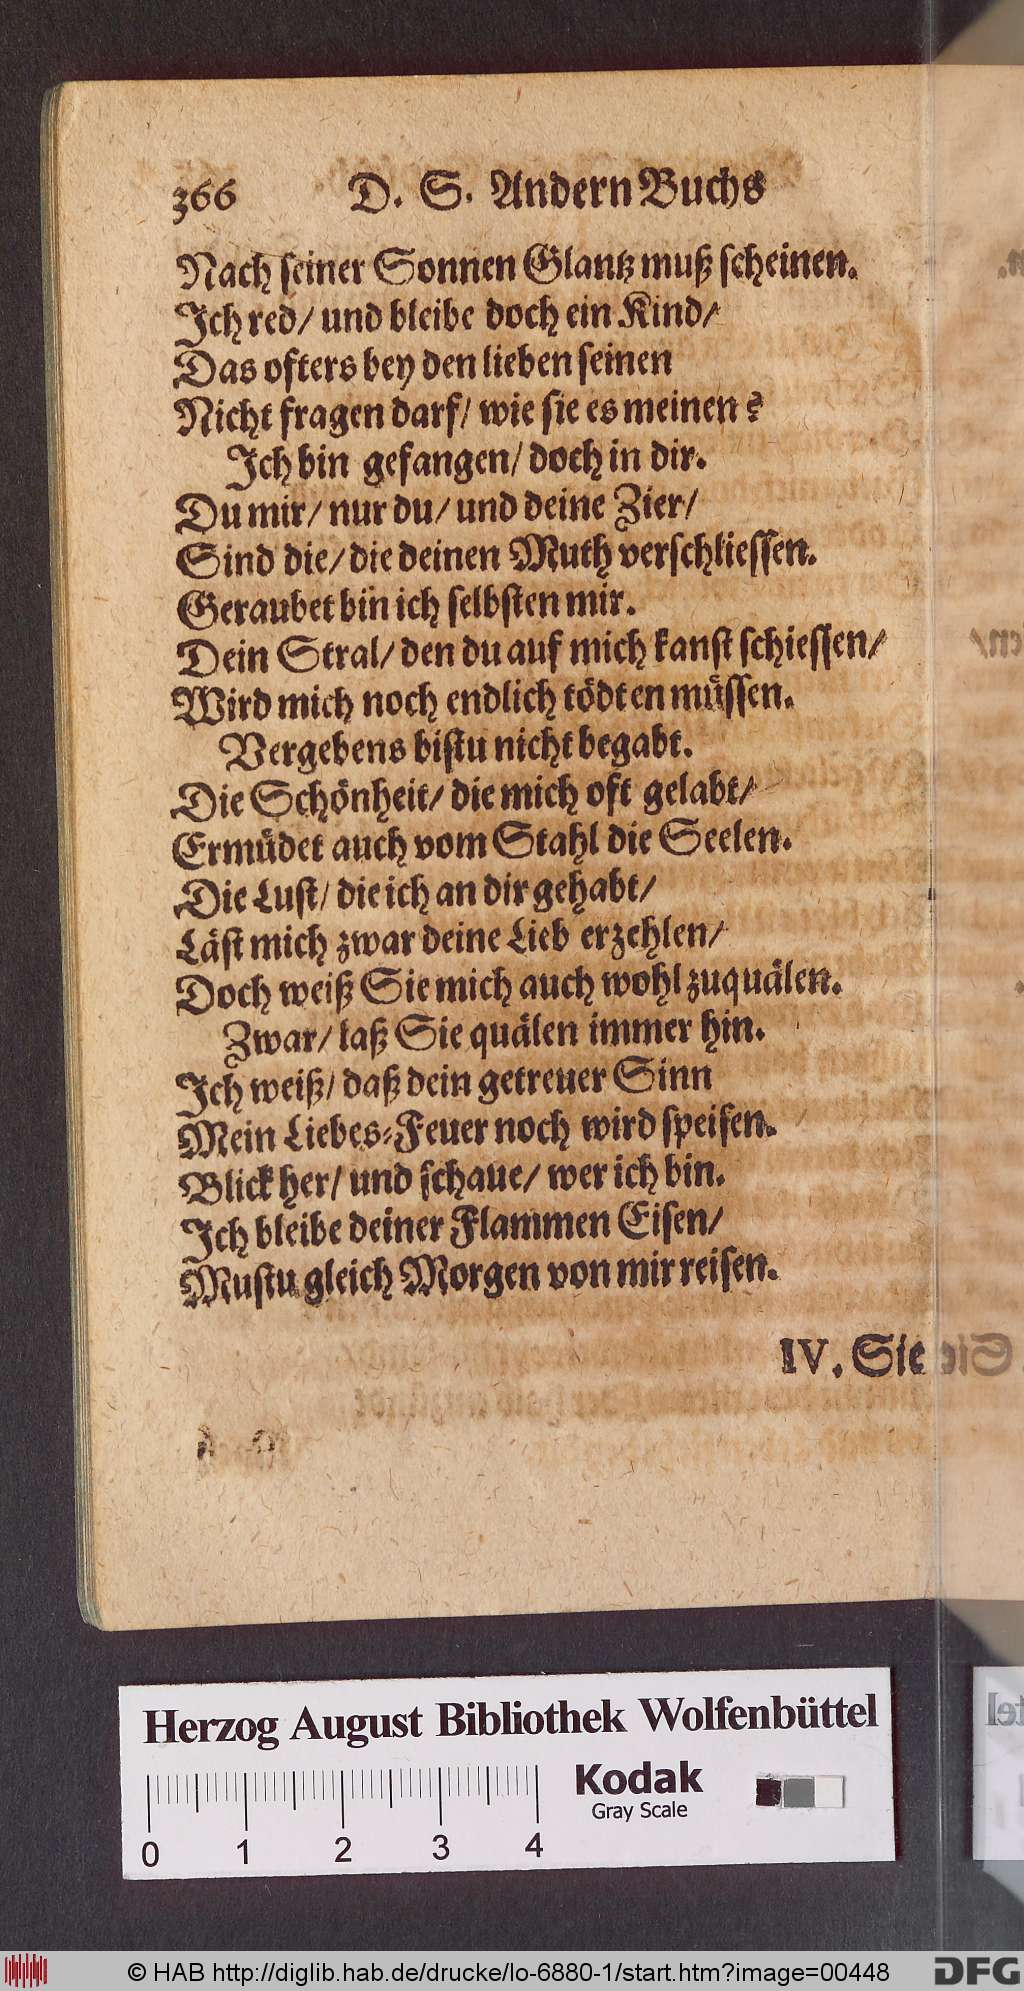 366 D. S. Andern Buchs
Nach seiner Sonnen Glantz muß scheinen.
Ich red/ und bleibe doch ein Kind/
Das ofters bey den lieben seinen
Nicht fragen darf/ wie sie es meinen?
Ich bin gefangen/ doch in dir.
Du mir/ nur du/ und deine Zier/
Sind die/ die deinen Muth verschliessen.
Geraubet bin ich selbsten mir.
Dein Stral/ den du auf mich kanst schiessen/
Wird mich noch endlich tödten müssen.
Vergebens bistu nicht begabt.
Die Schönheit/ die mich oft gelabt/
Ermüdet auch vom Stahl die Seelen.
Die Lust/ die ich an dir gehabt/
Läst mich zwar deine Lieb erzehlen/
Doch weiß Sie mich auch wohl zuquälen.
Zwar/ laß Sie quälen immer hin.
Ich weiß/ daß dein getreuer Sinn
Mein Liebes-Feuer noch wird speisen.
Blick her/ und schaue/ wer ich bin.
Ich bleibe deiner Flammen Eisen/
Mustu gleich Morgen von mir reisen.
IV. Sie
Herzog August Bibliothek Wolfenbüttel
Kodak
Gray Scale
0 1 2 3 4
© HAB http://diglib.hab.de/drucke/lo-6880-1/start.htm?image=00448
DFG